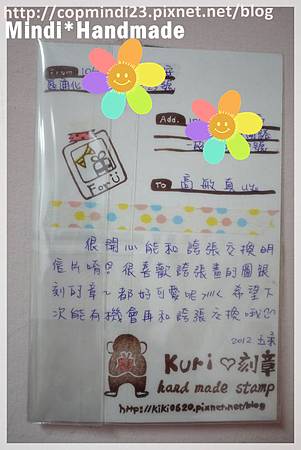 http://copmindi23.pixnet.net/blog
Mindi*Handmade
From
Add.
For U
To
很開心能和誇張交換明
信片唷！很喜歡誇張畫的圖跟
刻的章～都好可愛呢>///< 希望下
次能有機會再和誇張交換哦
2012
Kuri♡刻章
hand made stamp
http://kiki0620.pixnet.net/blog